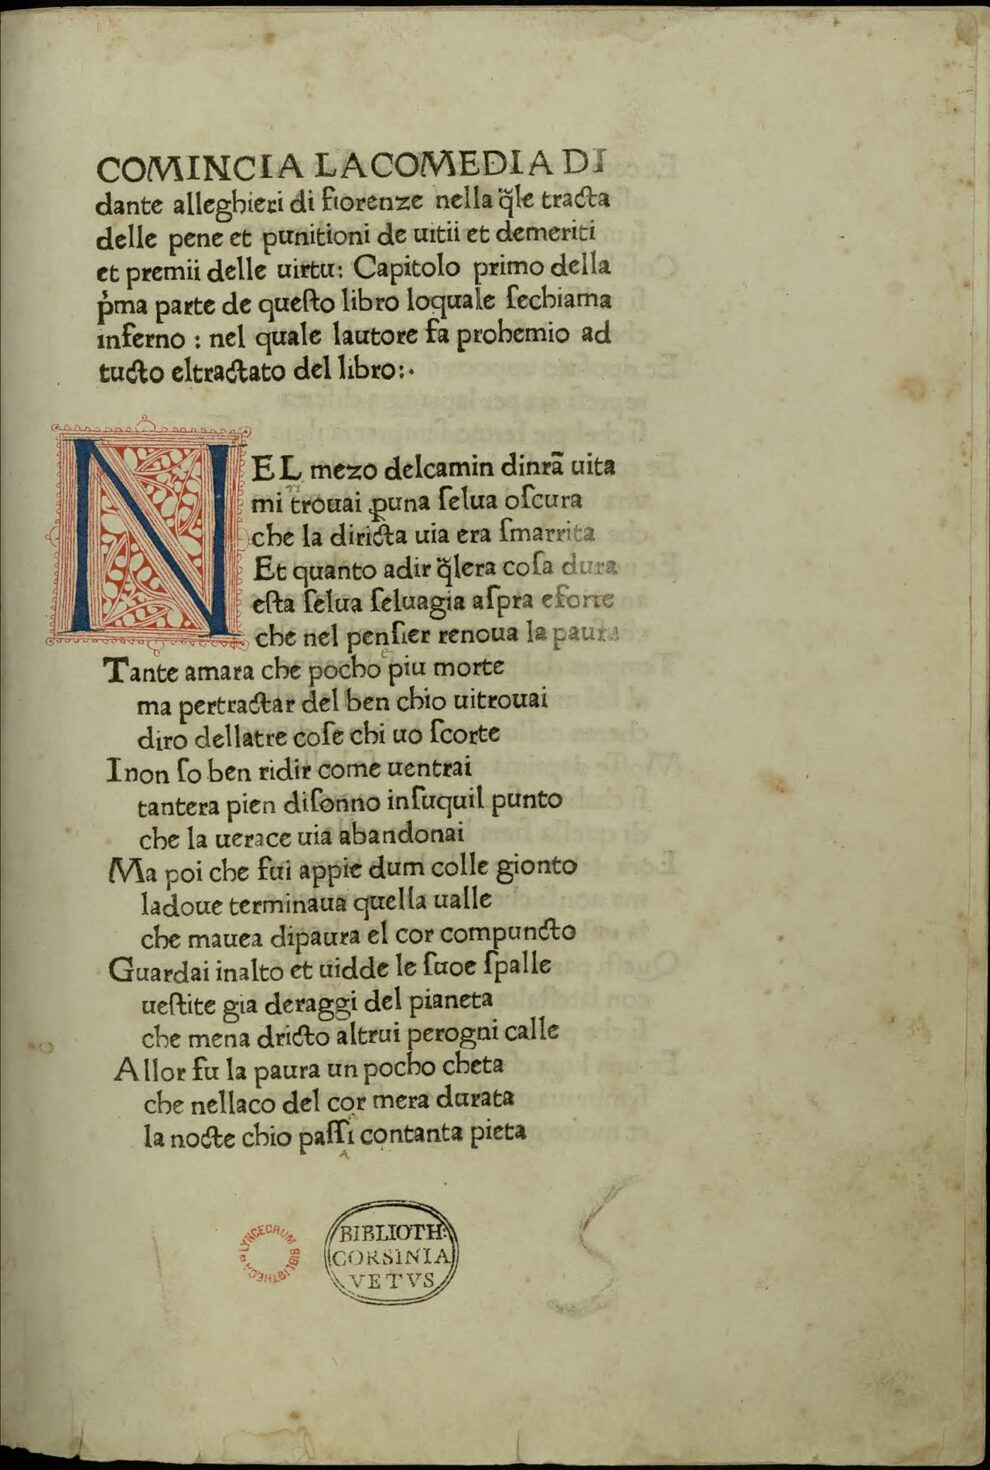 COMINCIA LACOMEDIA DI
dante alleghieri di fiorenze nella q̃le tracta
delle pene et punitioni de uitii et demeriti
et premii delle uirtu: Capitolo primo della
p̍ma parte de queſto libro loquale ſechiama
inferno : nel quale lautore fa probemio ad
tucto eltractato del libro:·
NEL mezo delcamin dinrã uita
mi trouai ꝑuna ſelua oſcura
che la diricta uia era ſmarrita
Et quanto adir q̃lera coſa dura
eſta ſelua ſeluagia aſpra eforte
che nel penſier renoua la paura
Tante amara che pocho piu morte
ma pertractar del ben chio uitrouai
diro dellatre coſe chi uo ſcorte
Inon ſo ben ridir come uentrai
tantera pien diſonno inſuquil punto
che la uerace uia abandonai
Ma poi che fui appie dum colle gionto
ladoue terminaua quella ualle
che mauea dipaura el cor compuncto
Guardai inalto et uidde le ſuoe ſpalle
ueſtite gia deraggi del pianeta
che mena dricto altrui perogni calle
Allor fu la paura un pocho cheta
che nellaco del cor mera durata
la nocte chio paſſi contanta pieta
LYNCEORUM BIBLIOTHECA
BIBLIOTH:
CORSINIA
VETVS